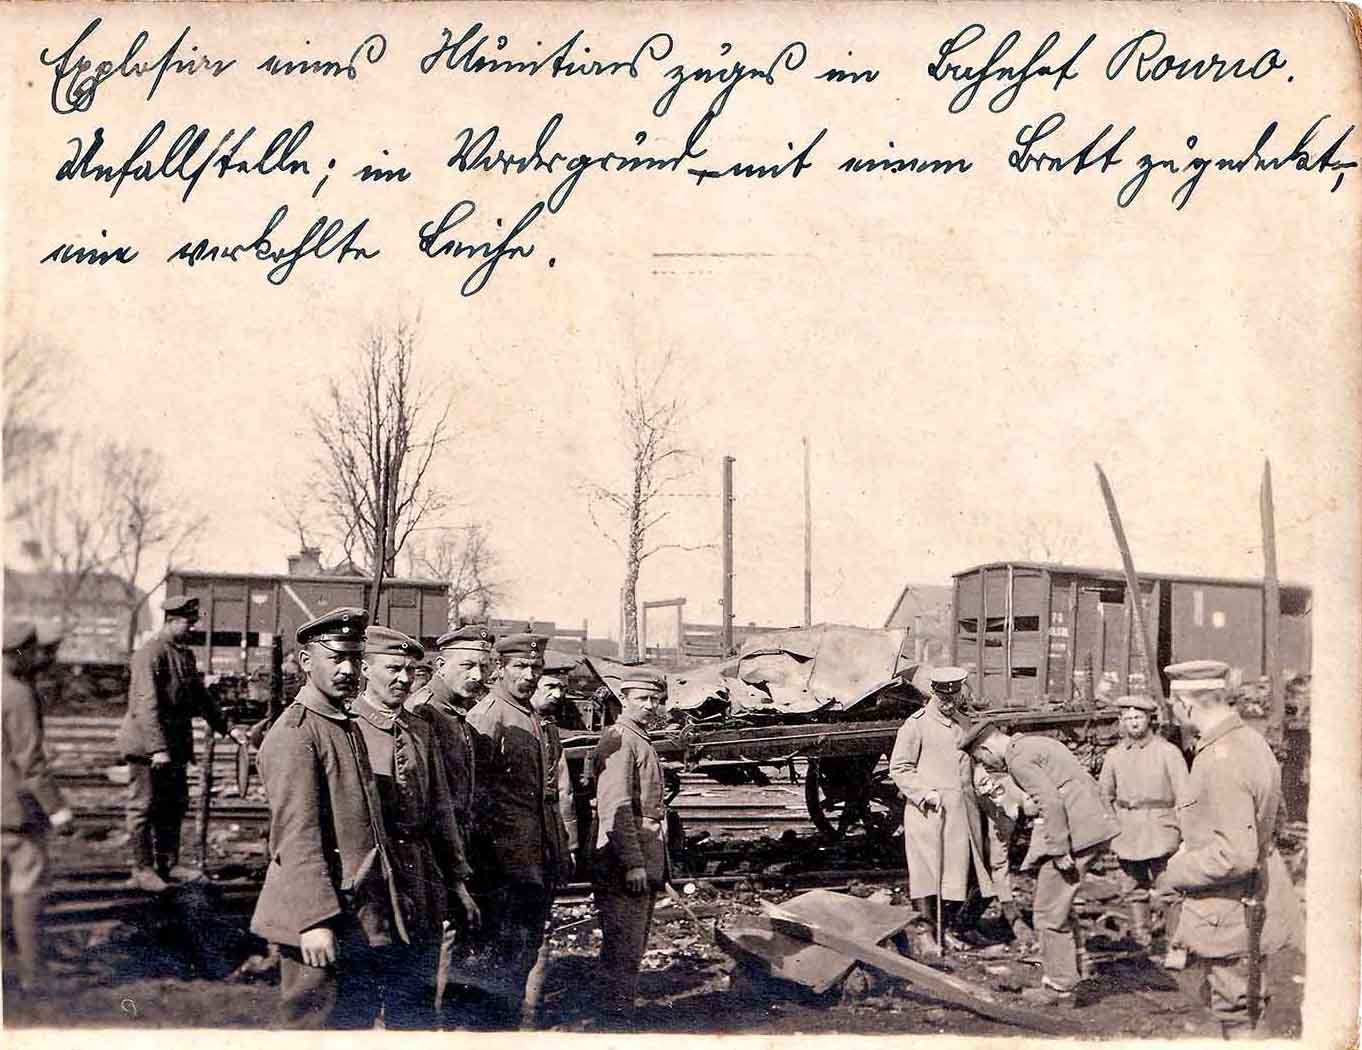 Explosion eines Munitionszuges im Bahnhof Rowno.
Unfallstelle; im Vordergrund, mit einem Brett zugedeckt,
eine verkohlte Leiche.